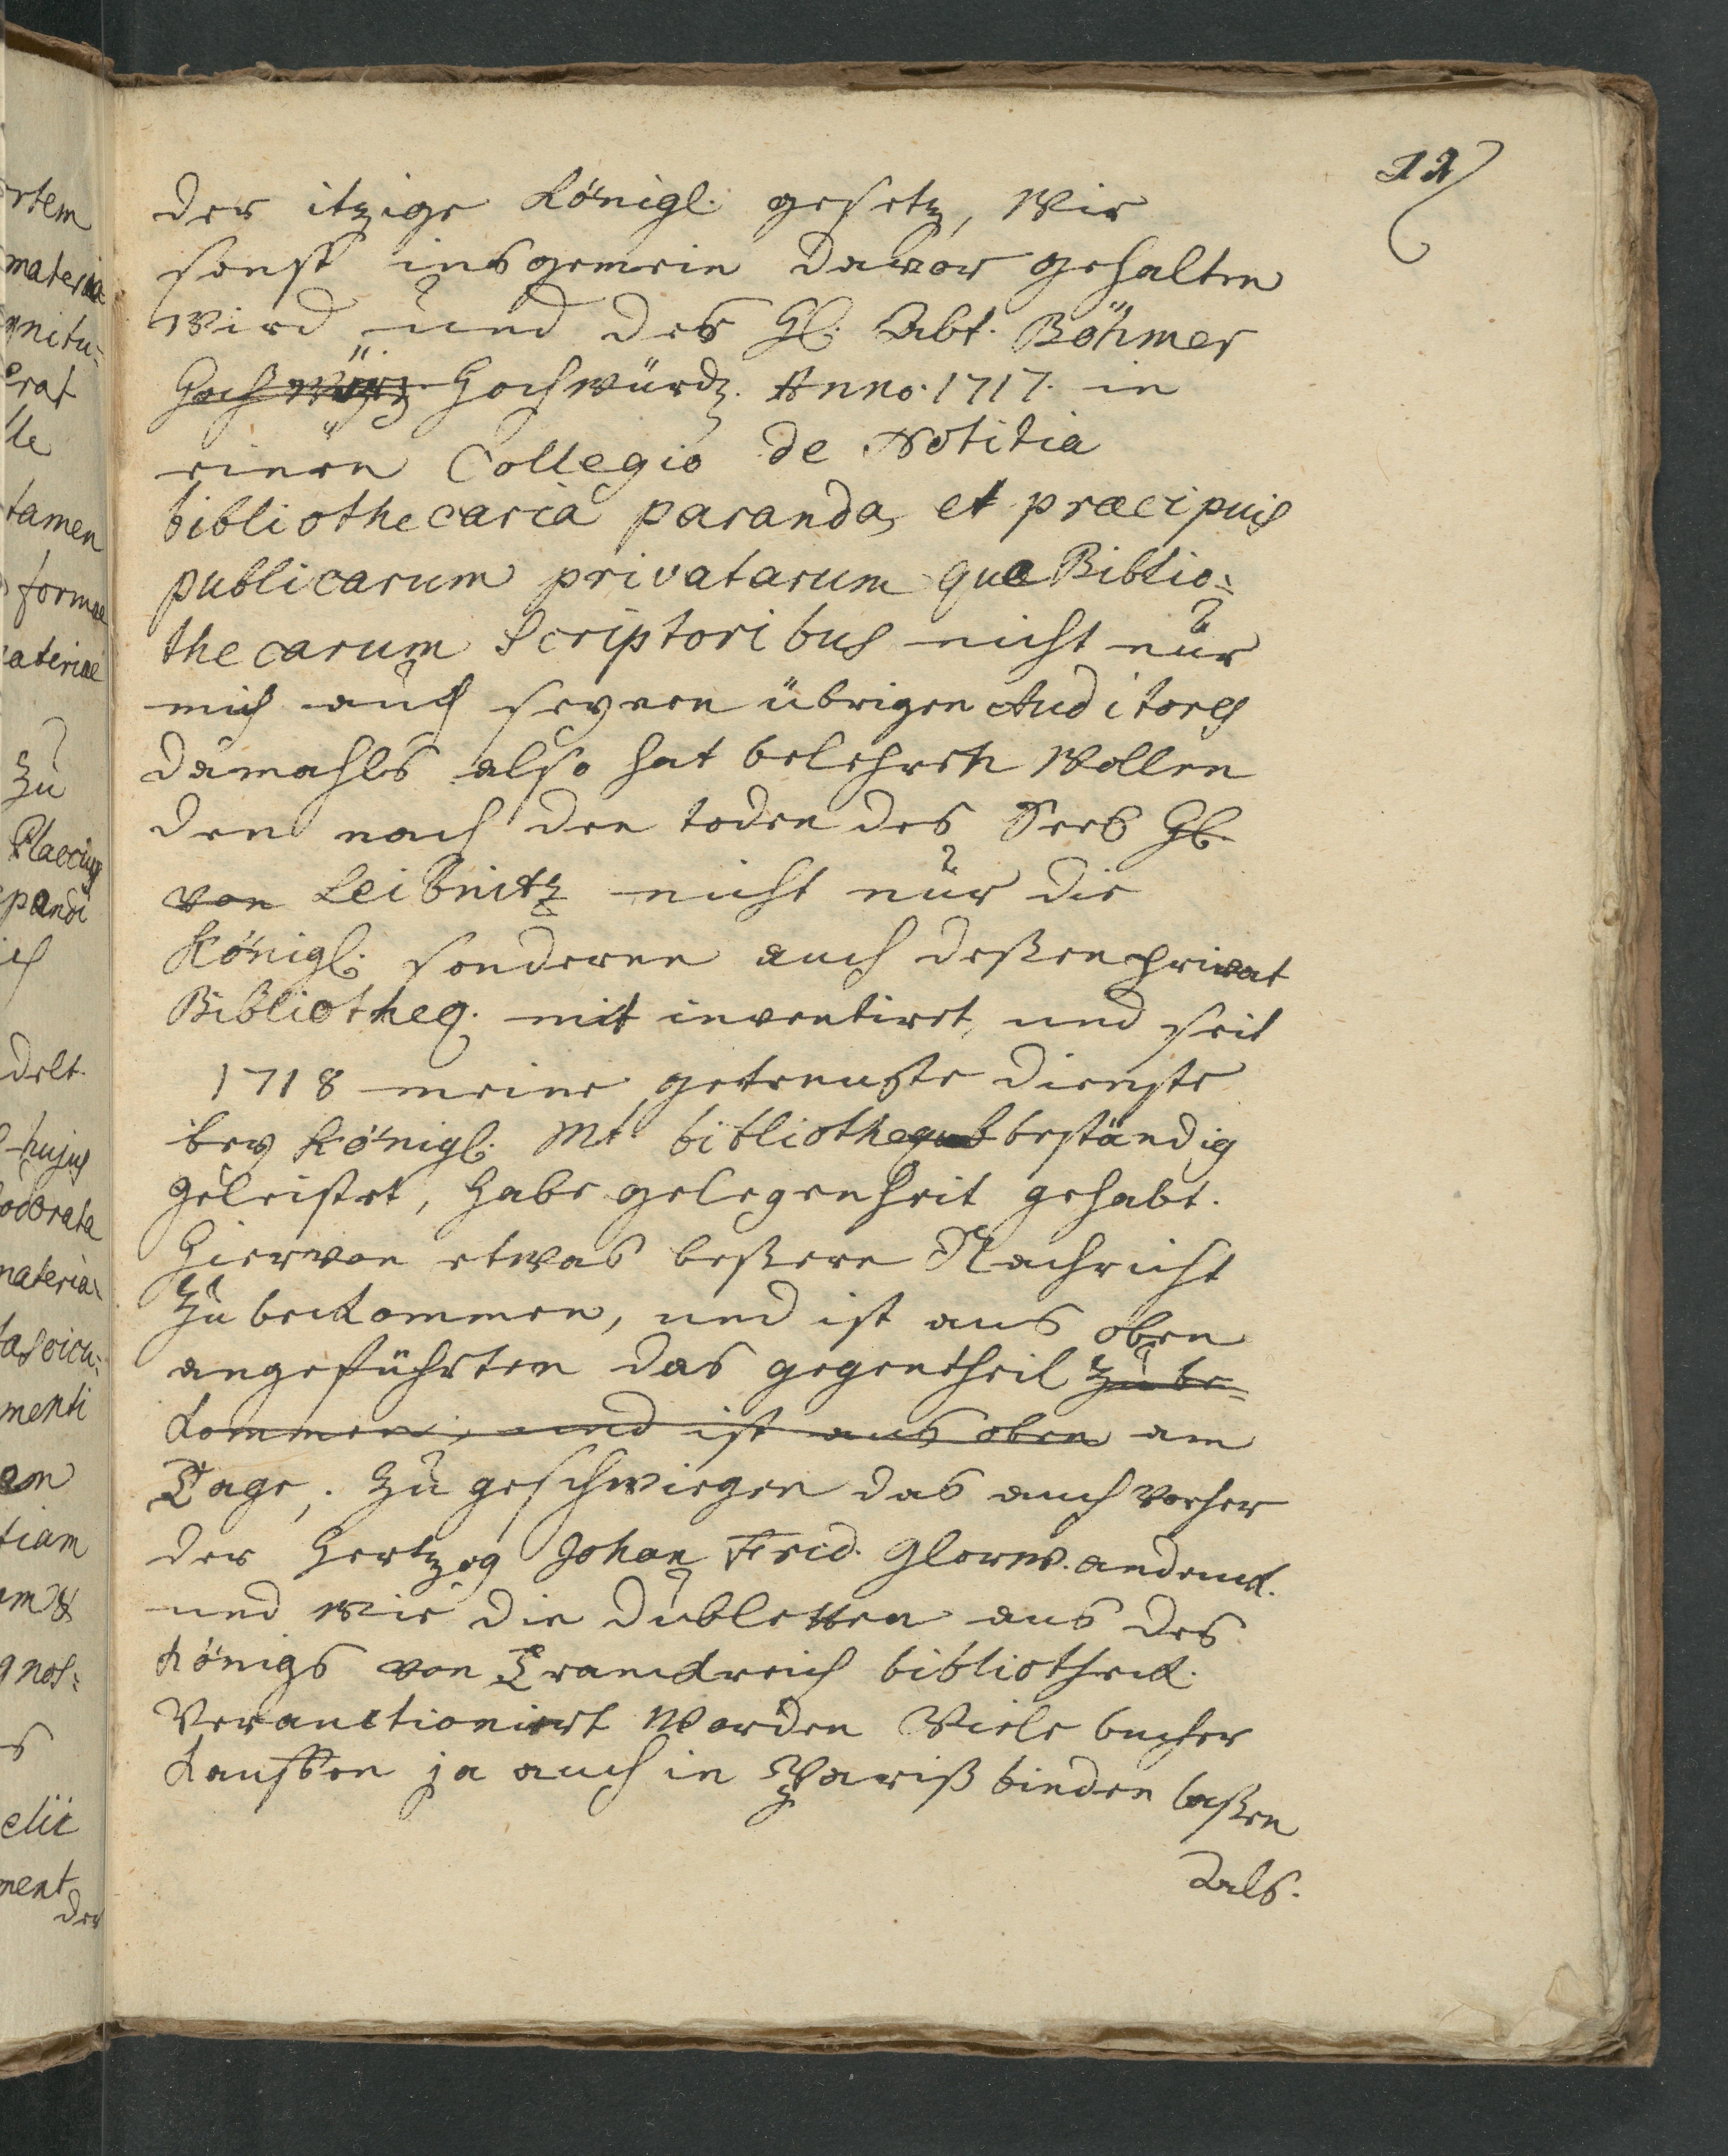 12
der itzige Königl. gesetz, Wie
sonst insgemein davor gehalten
wird und des H. Abt. Böhmer
Hochwürd. Anno. 1717. in
einen Collegio de Notitia
bibliothecaria paranda, et præcipuis
publicarum privatarum que Biblio=
thecarum Scriptoribus nicht nur
mich auch seynen übrigen Auditores
damahls also hat belehren wollen
den nach den toden des Seel H.
von Leibnitz nicht nur die
Königl. sonderen auch deßen privat
Biblioтheq. mit inventiret, und seit
1718 meine getreuste dienste
bey Königl. Mt. bibliotheque beständig
geleistet, habe gelegenheit gehabt.
Hiervon etwas beßere Nachricht
zu bekommen, und ist aus oben
angeführten das gegentheil zu be=
kommen, und ist aus oben am
Tage, zu geschwiegen das auch vorher
der Hertzog Johan Frid. Glorw. andenck.
und wie die dubletten aus des
Königs von Franckreich bibliotheck.
Verauctioniert worden Viele bucher
kauffen ja auch in Pariß binden laßen
Als.
rtem
materia
gnitu=
erat
lle
tamen
formae
materiae
zu
Placcius
delt.
hujus
odorata
materia
fascicu=
menti
em
tiam
gnos=
elii
ment
der